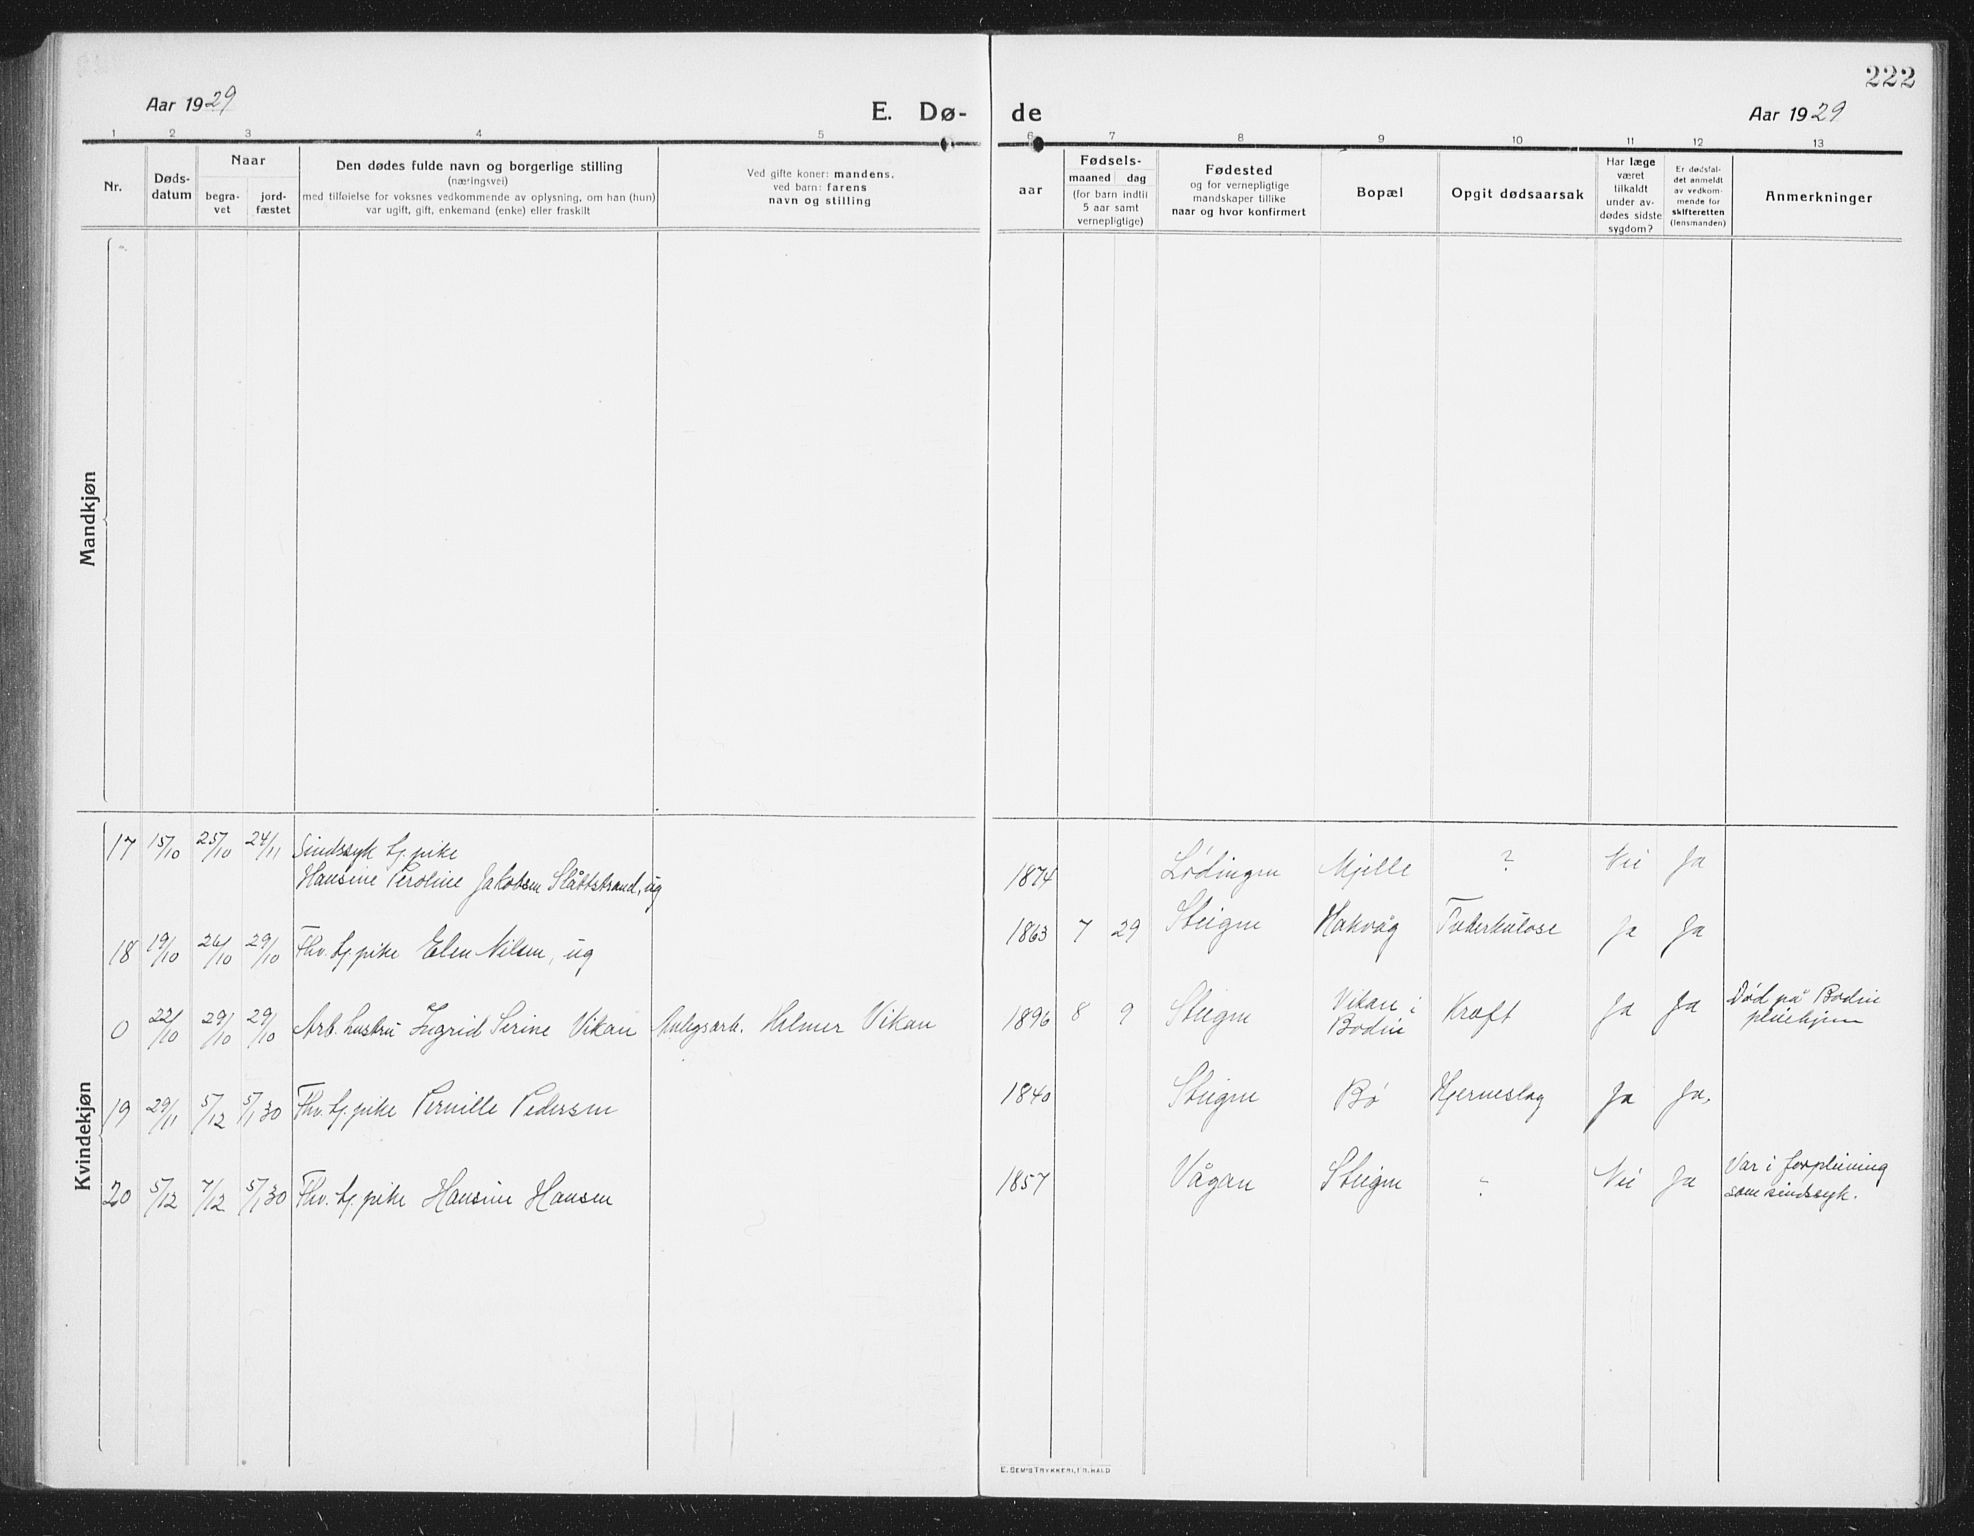 222
Aar 1929
E. Dø-
de
Aar 1929
1 2 3 4 5 6 7 8 9 10 11 12 13
Nr.
Døds-
datum
Naar
begra-
vet
jord-
fæstet
Den dødes fulde navn og borgerlige stilling
(næringsvei)
med tilføielse for voksnes vedkommende av oplysning, om han (hun)
var ugift, gift, enkemand (enke) eller fraskilt
Ved gifte koner: mandens.
ved barn: farens
navn og stilling
aar
Fødsels-
maaned dag
(for barn indtil
5 aar samt
vernepligtige)
Fødested
og for vernepligtige
mandskaper tillike
naar og hvor konfirmert
Bopæl
Opgit dødsaarsak
Har læge
været
tilkaldt
under av-
dødes sidste
sygdom?
Er dødsfal-
det anmeldt
av vedkom-
mende for
skifteretten
(lensmanden)
Anmerkninger
Mandkjøn
Kvindekjøn
17 15/10 25/10 24/11 Sindssyk tj. pike
Hansine Peroline Jakobsen Slåttstrand, ug 1874 Lødingen Mjelle ? Nei Ja
18 19/10 26/10 29/10 Fhv. tj. pike Elen Nilsen, ug 1863 7 29 Steigen Hakvåg Tuberkulose Ja Ja
0 22/10 29/10 29/10 Arb. hustru Ingrid Serine Vikan Anlegsarb. Hilmer Vikan 1896 8 9 Steigen Vikan i
Bodin Kræft Ja Ja Død på Bodin
pleiehjem
19 29/11 5/12 5/1 30 Fhv. tj. pike Pernille Pedersen 1840 Steigen Bø Hjerneslag Ja Ja.
20 5/12 7/12 5/1 30 Fhv. tj. pike Hansine Hansen 1857 Vågan Steigen ? Nei Ja Var i forpleining
som sindssyk.
E. SEM'S TRYKKERI, FR.HALD